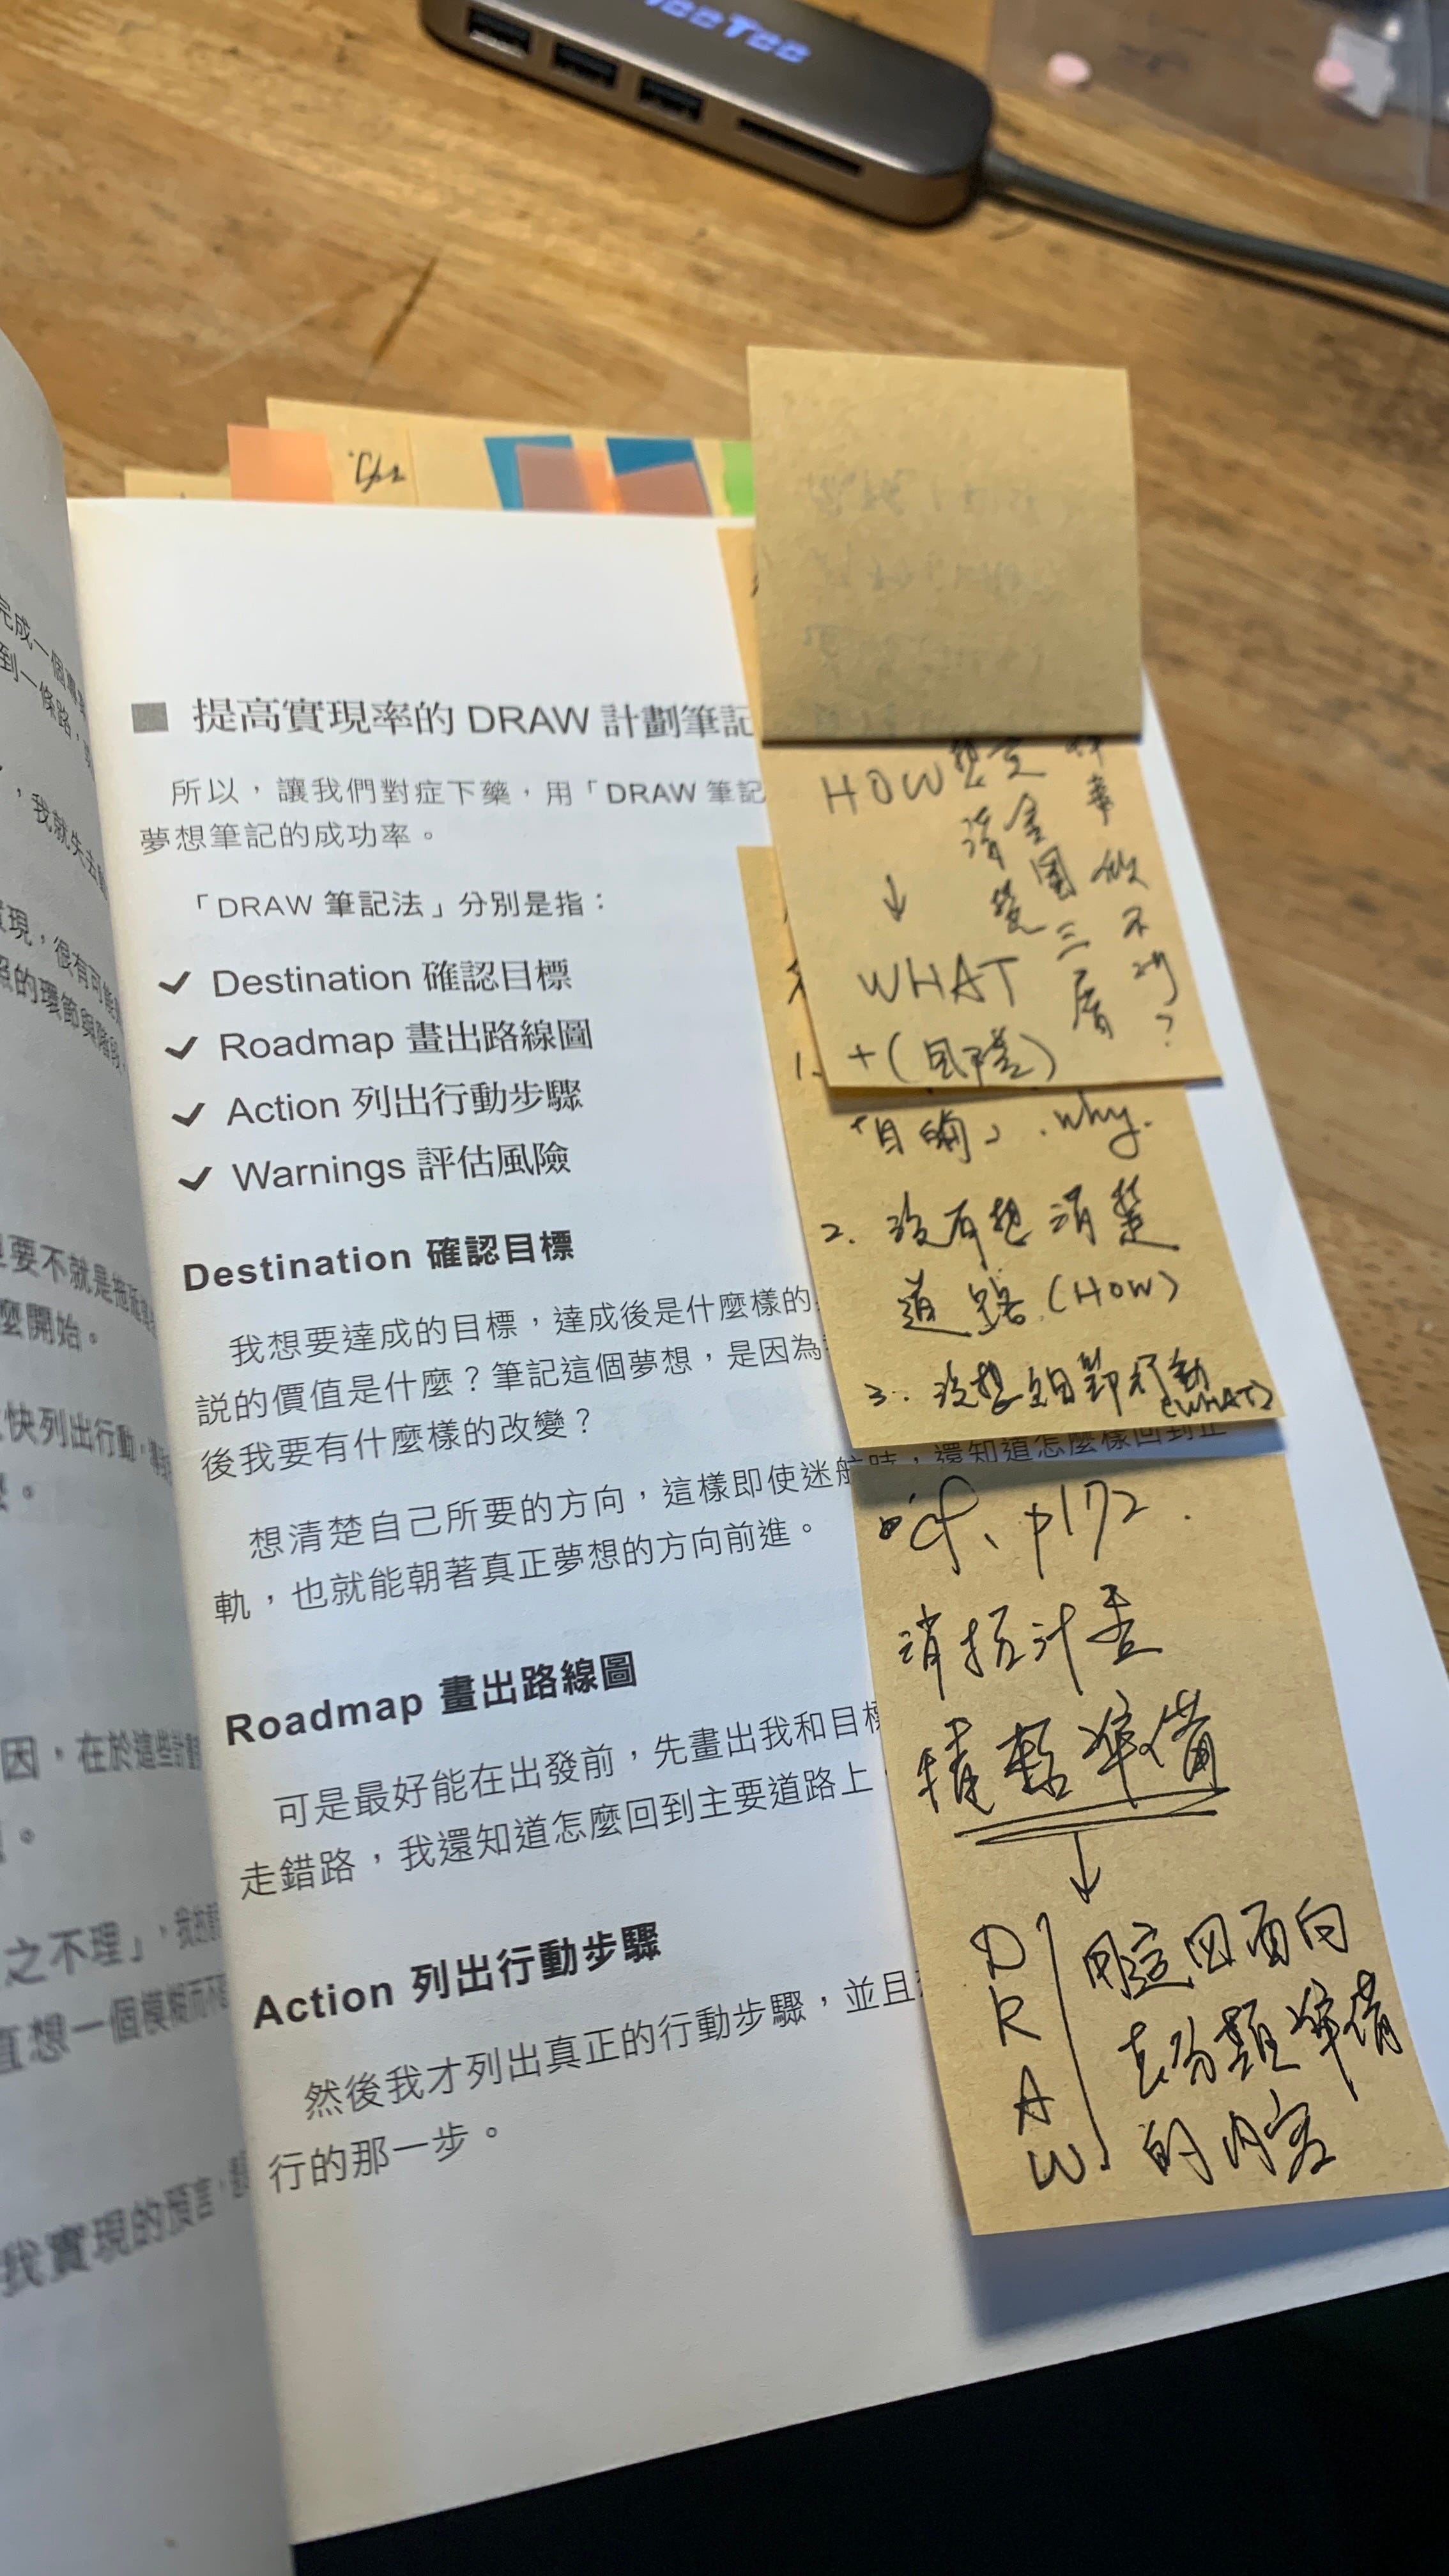 提高實現率的 DRAW 計劃筆記
所以，讓我們對症下藥，用「DRAW 筆記
夢想筆記的成功率。
「DRAW 筆記法」分別是指：
Destination 確認目標
Roadmap 畫出路線圖
Action 列出行動步驟
Warnings 評估風險
Destination 確認目標
我想要達成的目標，達成後是什麼樣的
說的價值是什麼？筆記這個夢想，是因為
後我要有什麼樣的改變？
想清楚自己所要的方向，這樣即使迷航時，還知道怎麼樣回到正
軌，也就能朝著真正夢想的方向前進。
Roadmap 畫出路線圖
可是最好能在出發前，先畫出我和目標
走錯路，我還知道怎麼回到主要道路上
Action 列出行動步驟
然後我才列出真正的行動步驟，並且
行的那一步。
HOW
↓
WHAT
+（風險）
想清楚
這三層
事做不
？
「目的」. why.
2. 沒有想清楚
道路 (HOW)
3. 沒想細節行動
(WHAT)
cf. p172.
準備
↓
D
R
A
W
用這四面向
去分類準備
的內容
完成一個
到一條路，
，我就失去
實現，很有可能
的環節與階段
要不就是拖
麼開始。
快列出行動，
因，在於這些計劃
之不理」，我
直想一個模糊而不
我實現的預言，